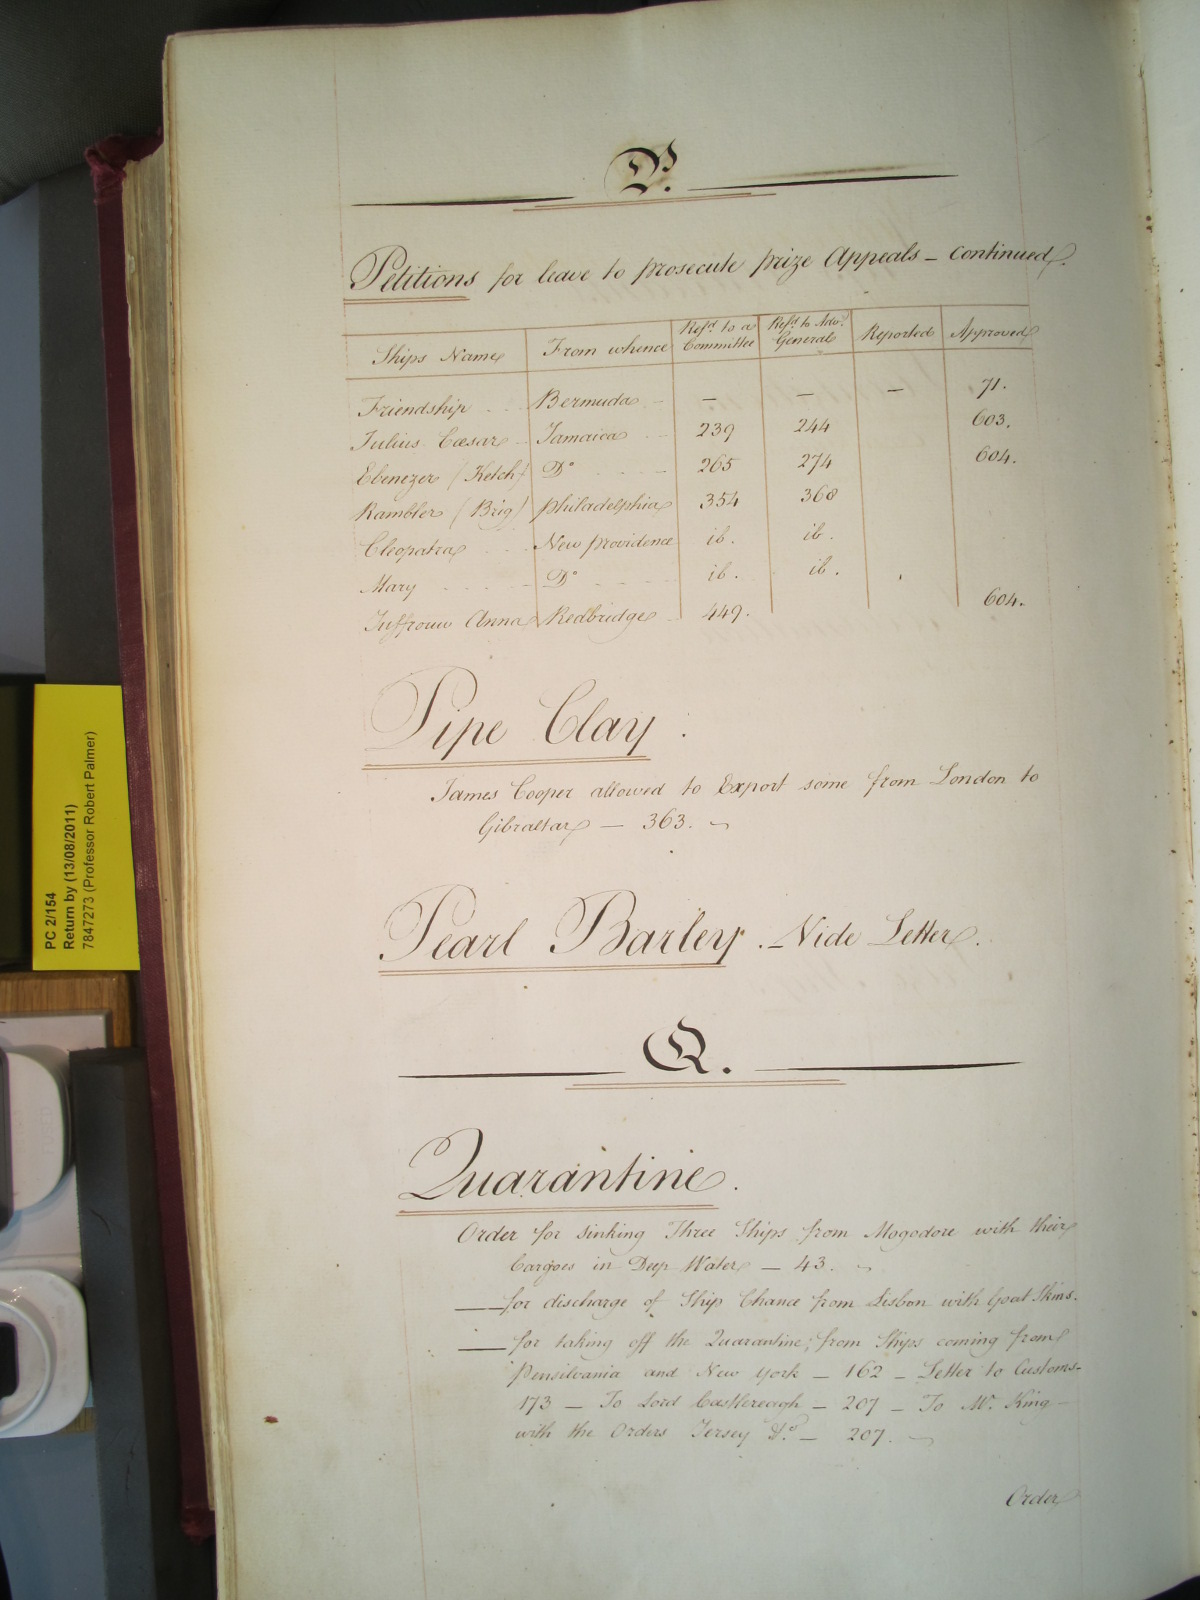 P.
Petitions for leave to prosecute prize Appeals – continued.
Ships Name | From whence | Refd. to a Committee | Refd. to Adv: General | Reported | Approved
Friendship | Bermuda | – | – | – | 71.
Julius Cæsar | Jamaica | 239 | 244 | | 603.
Ebenezer (Ketch) | Do | 265 | 274 | | 604.
Rambler (Brig) | philadelphia | 354 | 368
Cleopatra | New providence | ib. | ib.
Mary | Do | ib. | ib.
Juffrouw Anna | Redbridge | 449. | | | 604.
Pipe Clay.
James Cooper allowed to Export some from London to
Gibraltar – 363.
Pearl Barley. Vide Letter.
Q.
Quarantine.
Order for sinking Three Ships from Mogodore with their
Cargoes in Deep Water – 43.
—— for discharge of Ship Chance from Lisbon with Goat Skins.
—— for taking off the Quarantine, from Ships coming from
Pensilvania and New York – 162 – Letter to Customs–
173 – To Lord Castlereagh – 207 – To Mr. King –
with the Orders Jersey &c – 207.
Order
PC 2/154
Return by (13/08/2011)
7847273 (Professor Robert Palmer)